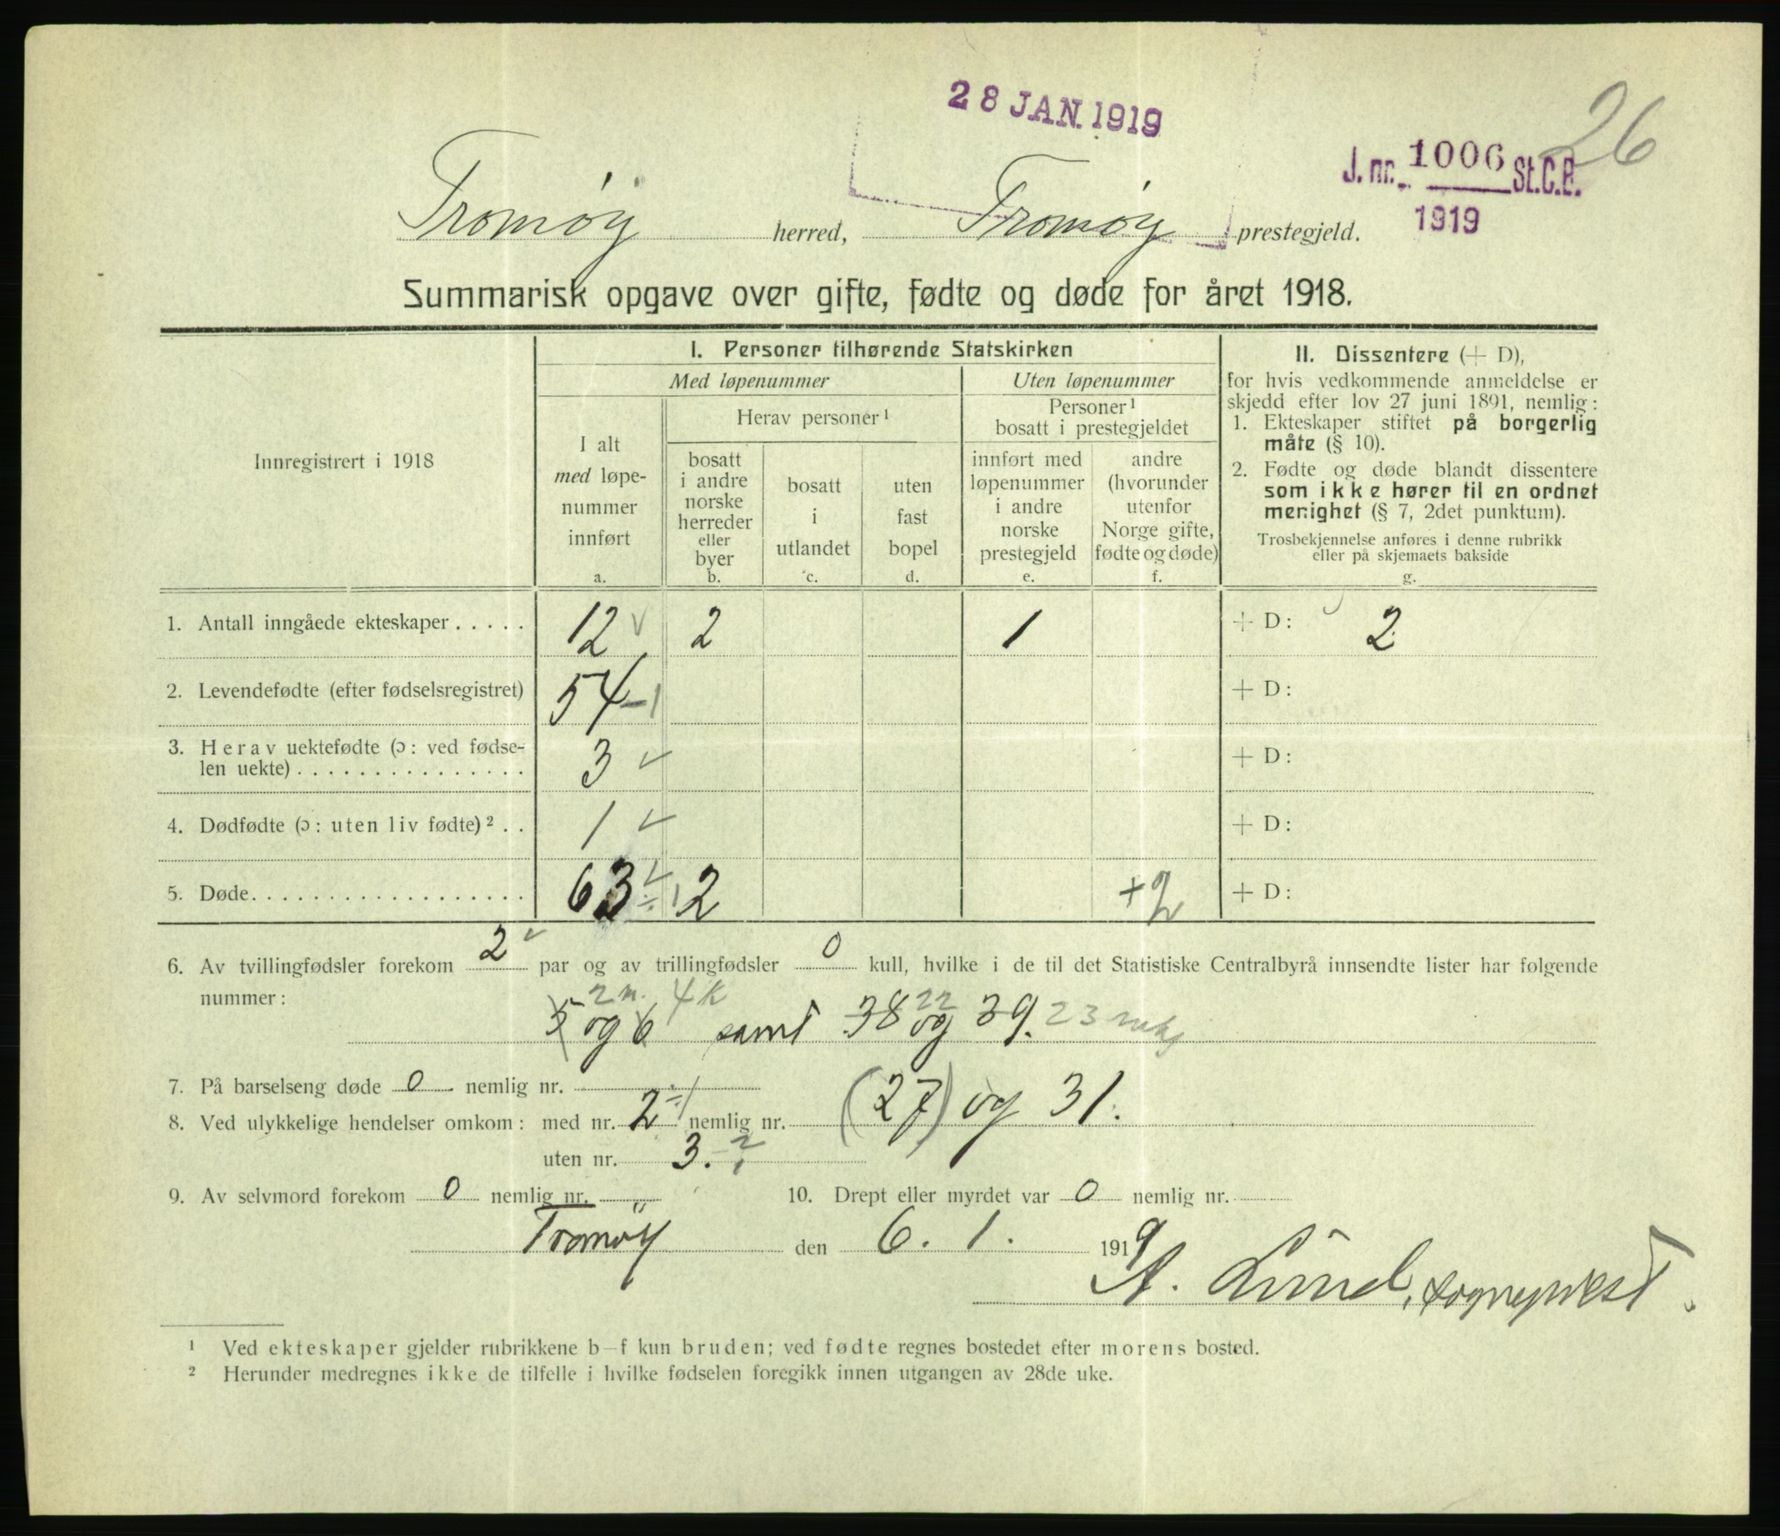 28 JAN. 1919
26
J. nr. 1006 St.C.B.
1919
Tromøy herred, Tromøy prestegjeld.
Summarisk opgave over gifte, fødte og døde for året 1918.
Innregistrert i 1918
I. Personer tilhørende Statskirken
Med løpenummer
Uten løpenummer
I alt
med løpe-
nummer
innført
a.
Herav personer ¹
bosatt
i andre
norske
herreder
eller
byer
b.
bosatt
i
utlandet
c.
uten
fast
bopel
d.
Personer ¹
bosatt i prestegjeldet
innført med
løpenummer
i andre
norske
prestegjeld
e.
andre
(hvorunder
utenfor
Norge gifte,
fødte og døde)
f.
II. Dissentere (+ D),
for hvis vedkommende anmeldelse er
skjedd efter lov 27 juni 1891, nemlig:
1. Ekteskaper stiftet på borgerlig
måte (§ 10).
2. Fødte og døde blandt dissentere
som ikke hører til en ordnet
menighet (§ 7, 2det punktum).
Trosbekjennelse anføres i denne rubrikk
eller på skjemaets bakside
g.
1. Antall inngåede ekteskaper..... 12 √ 2 1 + D: 2
2. Levendefødte (efter fødselsregistret) 54 -1 + D:
3. Herav uektefødte (ɔ: ved fødse-
len uekte)............... 3 √ + D:
4. Dødfødte (ɔ: uten liv fødte) ² .. 1 √ + D:
5. Døde.................. 63 √ ÷1 2 +2 + D:
6. Av tvillingfødsler forekom 2 √ par og av trillingfødsler 0 kull, hvilke i de til det Statistiske Centralbyrå innsendte lister har følgende
nummer:
2 m. 4 k 22
5 og 6 samt 38 og 39. 23
7. På barselseng døde 0 nemlig nr.
8. Ved ulykkelige hendelser omkom: med nr. 2 ÷1 nemlig nr. (27) og 31.
uten nr. 3.
9. Av selvmord forekom 0 nemlig nr. 10. Drept eller myrdet var 0 nemlig nr.
Tromöy den 6. 1. 1919
A. Lund, sogneprest.
¹ Ved ekteskaper gjelder rubrikkene b–f kun bruden; ved fødte regnes bostedet efter morens bosted.
² Herunder medregnes ikke de tilfelle i hvilke fødselen foregikk innen utgangen av 28de uke.